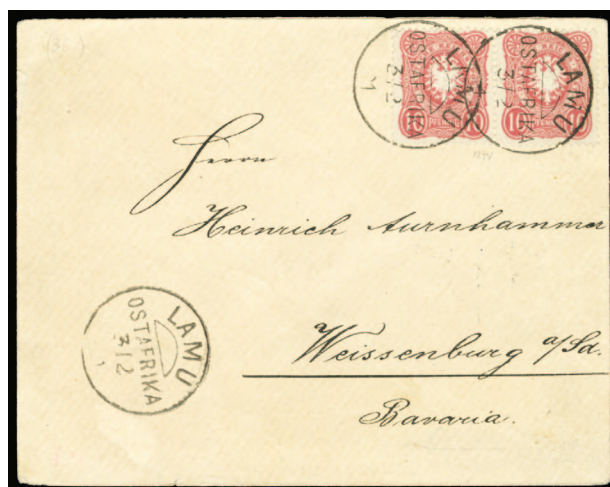 LAMU
OSTAFRIKA
3/2
1
LAMU
OSTAFRIKA
3/2
10
10
Herrn
Heinrich Aurnhammer
Weissenburg a/Sd.
Bavaria.
LAMU
OSTAFRIKA
3/2
1